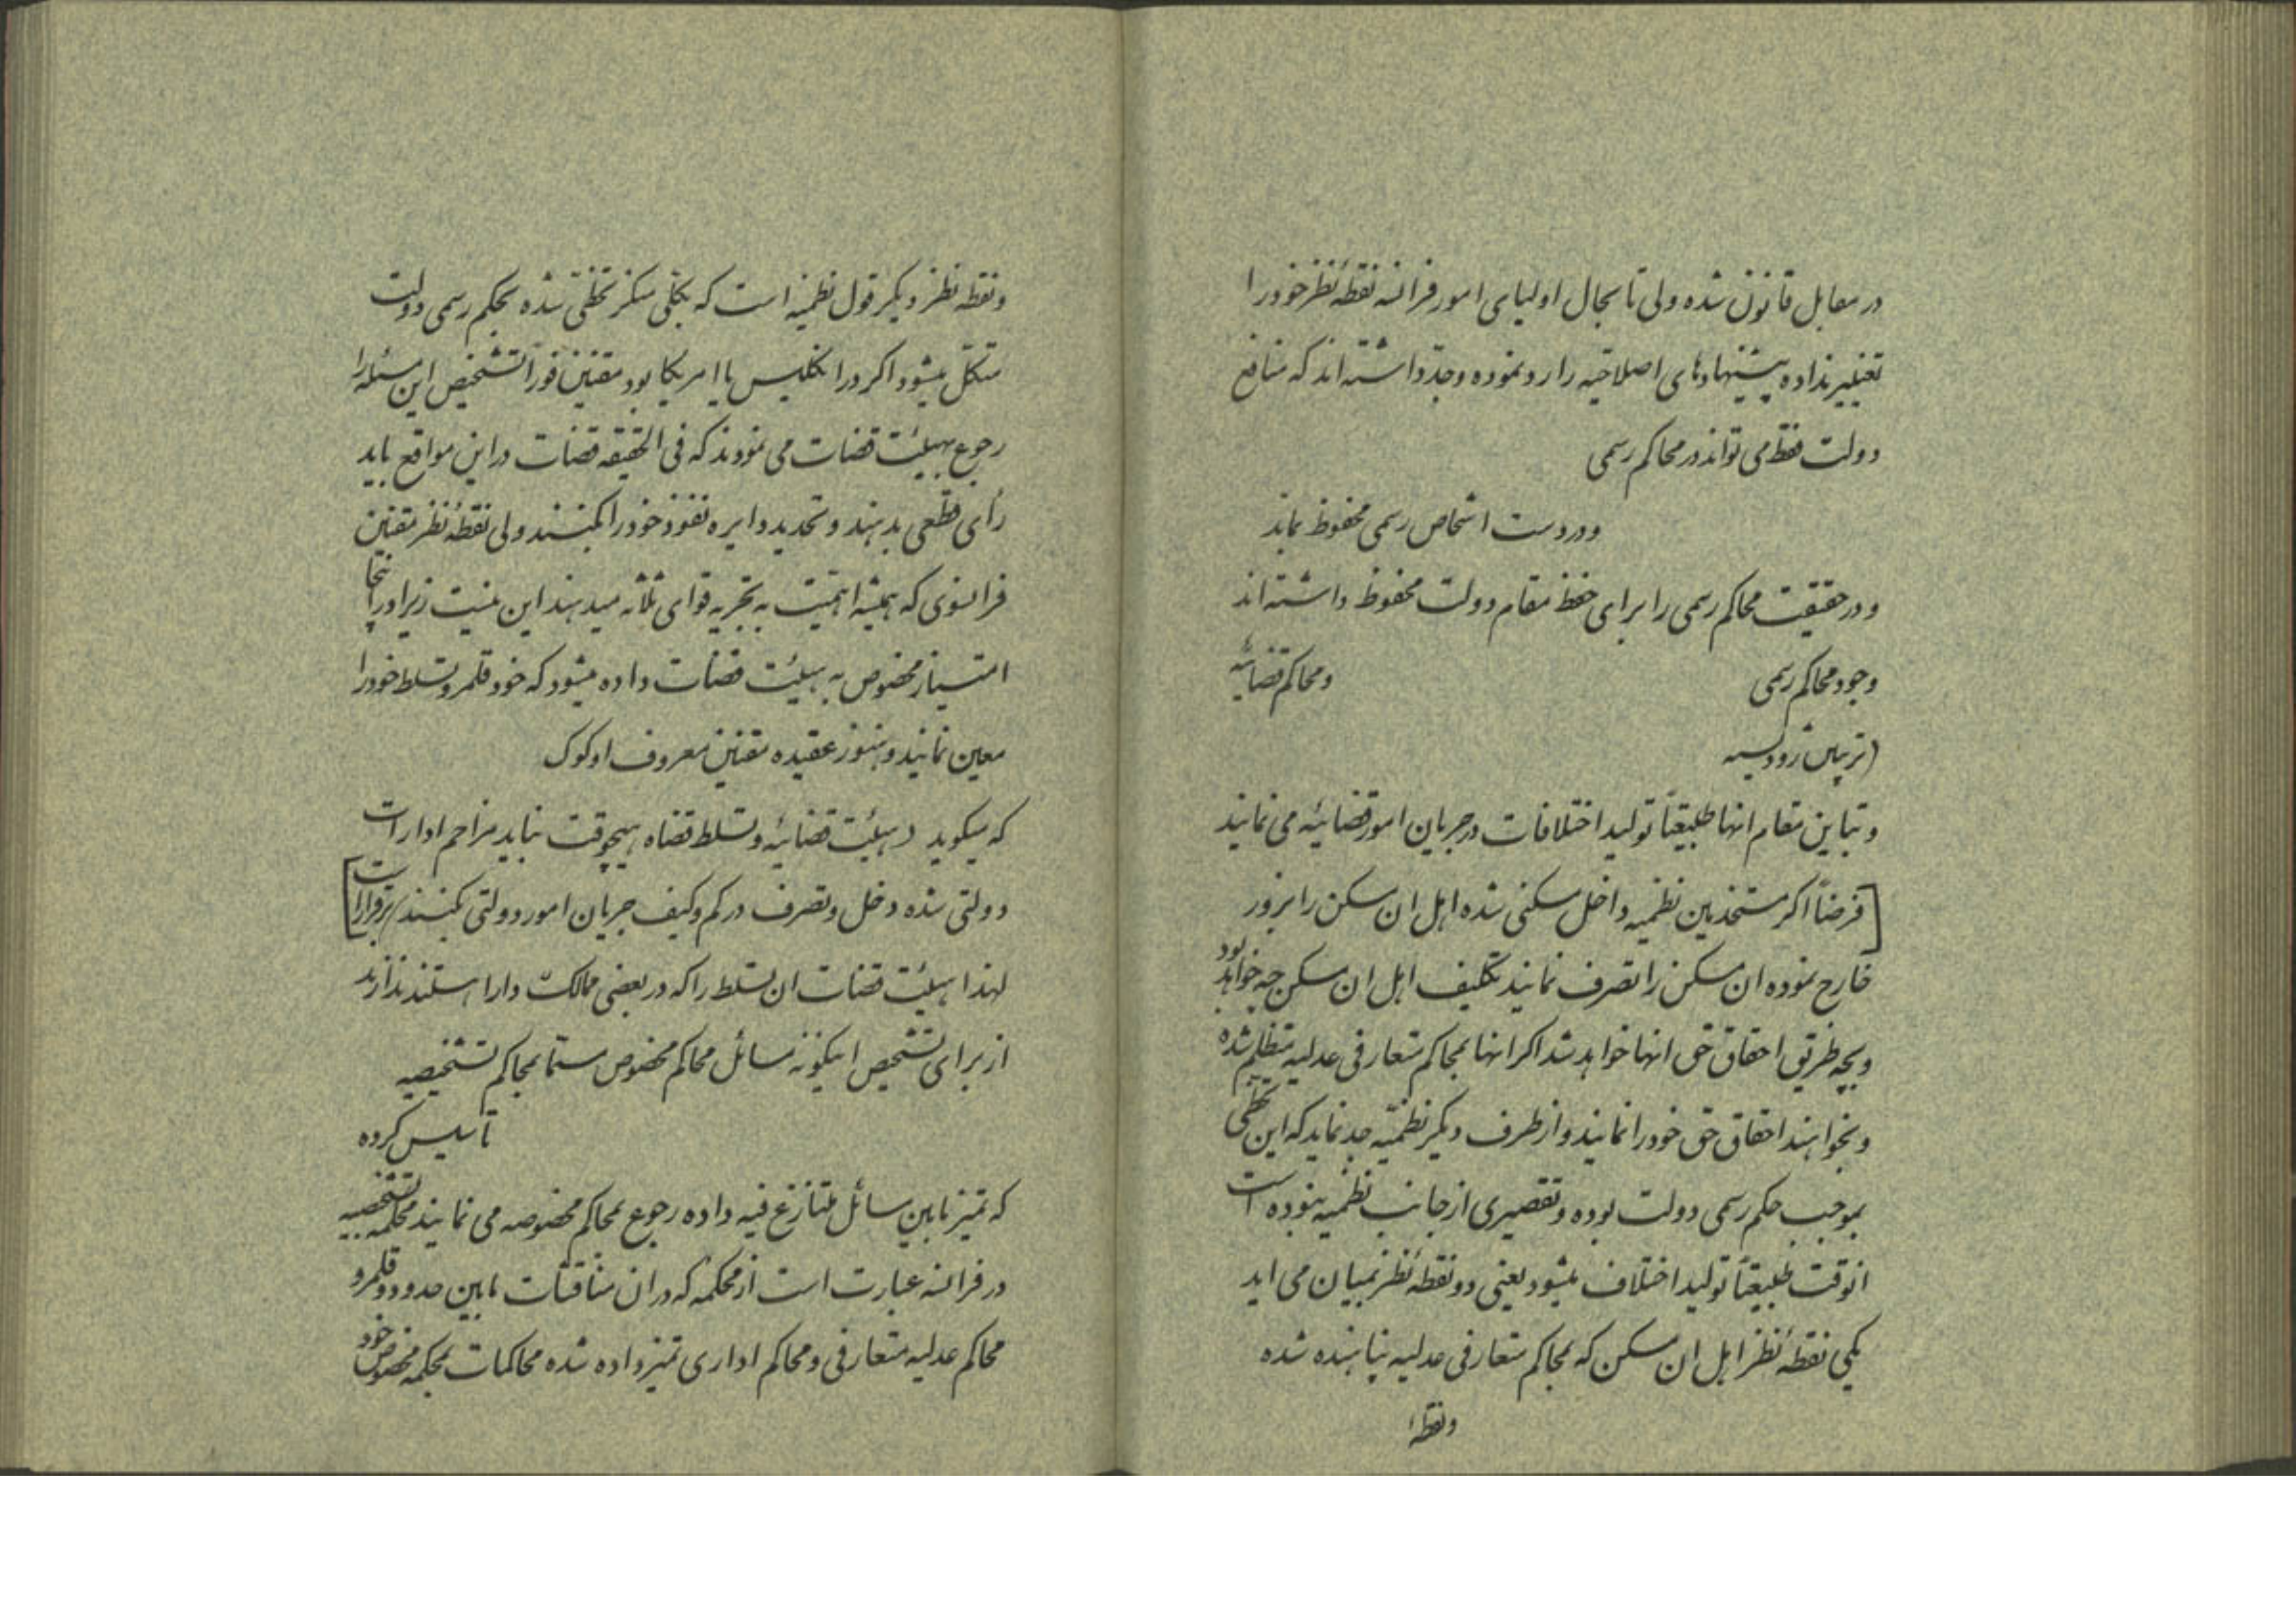 در مقابل قانون شده ولی تا بحال اولیای امور فرانسه نقطهٔ نظر خود را
تغییر نداده پیشنهادهای اصلاحیه را رد نموده وجدّ داشته اند که منافع
دولت فقط می تواند در محاکم رسمی
و در دست اشخاص رسمی محفوظ بماند
و در حقیقت محاکم رسمی را برای حفظ مقام دولت محفوظ داشته اند
وجود محاکم رسمی و محاکم قضائیه
و تباین مقام انها طبیعتاً تولید اختلافات در جریان امور قضائیه می نمایند
[فرضاً اکر مستخدمین نظمیه داخل سکنی شده اهل ان مسکن را بزور
خارج نموده ان مسکن را تصرف نمایند تکلیف اهل ان مسکن چه خواهد بود
و بچه طریق احقاق حق انها خواهد شد اکر انها بمحاکم متعارفی عدلیه متظلم شده
و بخواهند احقاق حق خود را نمایند و از طرف دیکر نظمیّه جد نماید که این تخطی
بموجب حکم رسمی دولت بوده و تقصیری از جانب نظمیه ننبوده است
انوقت طبیعتاً تولید اختلاف میشود یعنی دو نقطهٔ نظر بمیان می اید
یکی نقطهٔ نظر اهل ان مسکن که بمحاکم متعارفی عدلیه پناهنده شده
و نقطهٔ
و نقطه نظر دیکر قول نظمیه است که بکلی منکر تخطّی شده بحکم رسمی دولت
متکّل میشود اکر در انکلیس یا امریکا بود مقننین فوراً تشخیص این مسئله را
رجوع بهیئت قضات می نمودند که فی الحقیقه قضات در این مواقع باید
رأی قطعی بدهند و تحدید دایره نفوذ خود را بکنند ولی نقطهٔ نظر مقننین
فرانسوی که همیشه اهمیّت به تجزیه قوای ثلاثه میدهند این نیست زیرا در اینجا
امتیاز مخصوص به هیئت قضات داده میشود که خود قلمرو تسلط خود را
معین نمایند و هنوز عقیده مقنین معروف اوکوک
که میکوید (هیئت قضائیه و تسلط قضاه هیچوقت نباید مزاحم ادارات
دولتی شده دخل و تصرف در کم و کیف جریان امور دولتی بکنند) برقرار است]
لهذا هیئت قضات ان تسلط را که در بعضی ممالک دارا هستند ندارند
از برای تشخیص اینکونه مسائل محاکم مخصوص مسمّا بمحاکم تشخیصیه
تأسیس کرده
که تمیز مابین مسائل متنازع فیه داده رجوع بمحاکم مخصوصه می نمایند محکمه تشخصیه
در فرانسه عبارت است از محکمهٔ که در ان مناقشات مابین حدود و قلمرو
محاکم عدلیه متعارفی و محاکم اداری تمیز داده شده محاکمات بمحکمه مخصوص خود